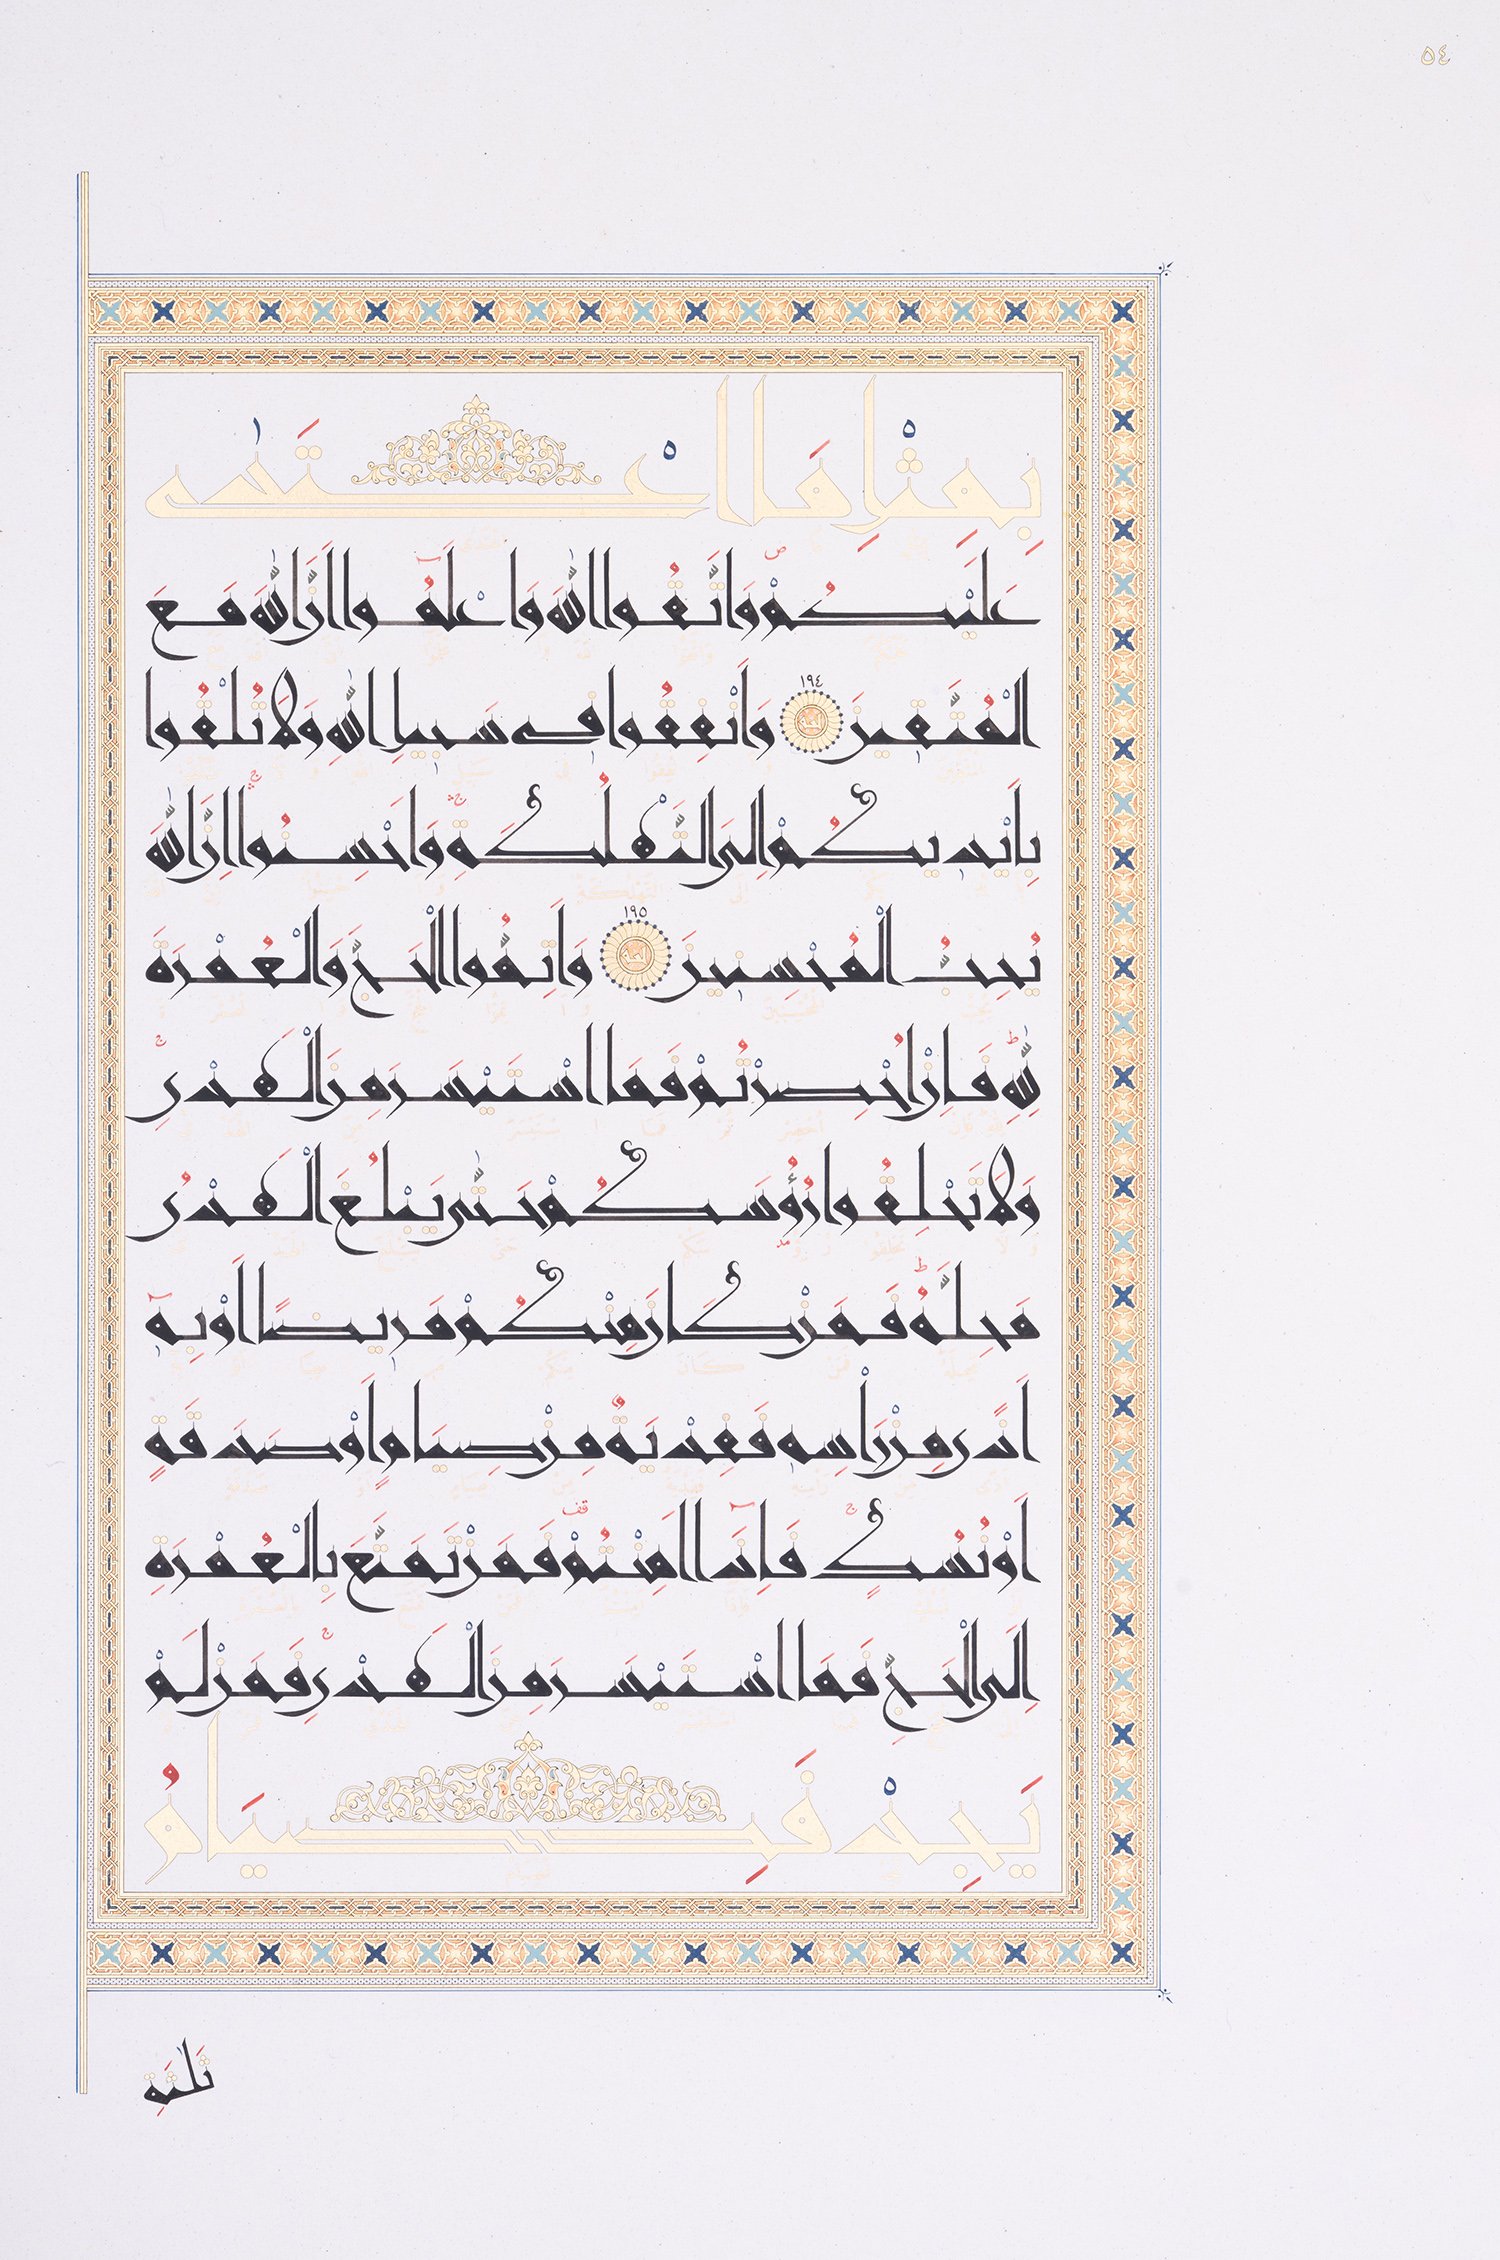 ٥٤
بِمِثْلِ مَا اعْتَدٰى
عَلَيْكُمْ وَاتَّقُوا اللّٰهَ وَاعْلَمُوا اَنَّ اللّٰهَ مَعَ
الْمُتَّقِينَ ١٩٤ وَاَنْفِقُوا فِى سَبِيلِ اللّٰهِ وَلَا تُلْقُوا
بِاَيْدِيكُمْ اِلَى التَّهْلُكَةِ وَاَحْسِنُوا اِنَّ اللّٰهَ
يُحِبُّ الْمُحْسِنِينَ ١٩٥ وَاَتِمُّوا الْحَجَّ وَالْعُمْرَةَ
لِلّٰهِ فَاِنْ اُحْصِرْتُمْ فَمَا اسْتَيْسَرَ مِنَ الْهَدْىِ
وَلَا تَحْلِقُوا رُؤُسَكُمْ حَتّٰى يَبْلُغَ الْهَدْىُ
مَحِلَّهُ فَمَنْ كَانَ مِنْكُمْ مَرِيضًا اَوْ بِهٖ
اَذًى مِنْ رَاْسِهٖ فَفِدْيَةٌ مِنْ صِيَامٍ اَوْ صَدَقَةٍ
اَوْ نُسُكٍ فَاِذَا اَمِنْتُمْ فَمَنْ تَمَتَّعَ بِالْعُمْرَةِ
اِلَى الْحَجِّ فَمَا اسْتَيْسَرَ مِنَ الْهَدْىِ فَمَنْ لَمْ
يَجِدْ فَصِيَامُ
ثَلٰثَةِ